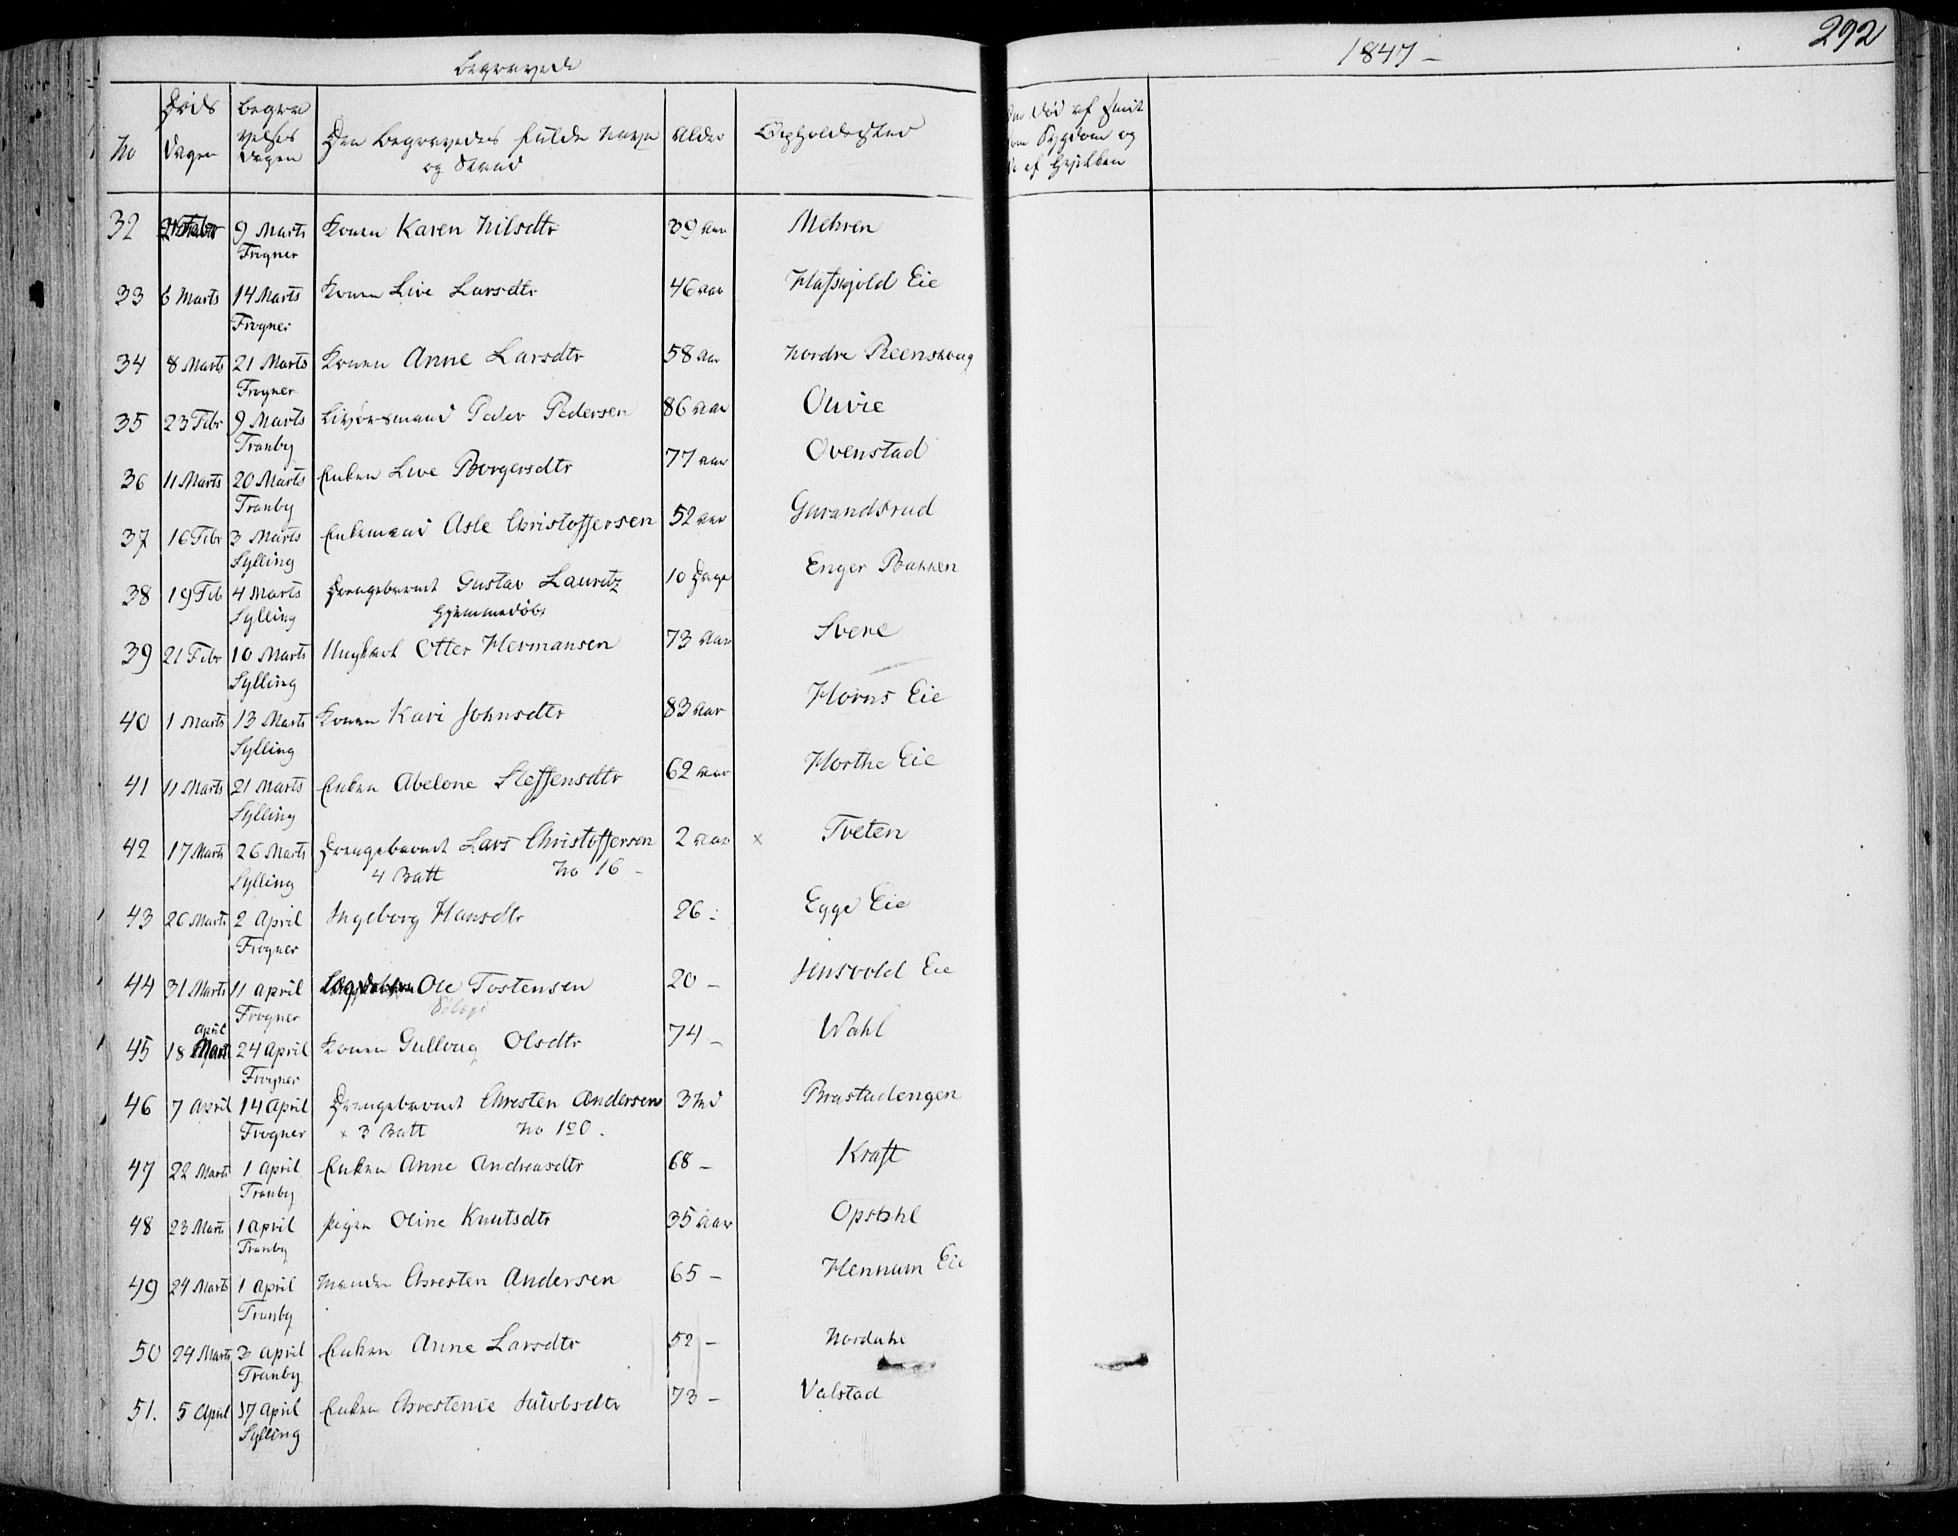 292
Begravede
1847 –
No
Døds Dagen
Begravelses Dagen
Den Begravedes fulde Navn og Stand
Alder
Opholdssted
død af smit
som Sygdom og
af hvilken
32 9 Marts Konen Karen Nilsdtr 39 aar Mehren
Frogner
33 6 Marts 14 Marts Konen Live Larsdtr 46 aar Hafskjold Eie
Frogner
34 8 Marts 21 Marts Konen Anne Larsdtr 58 Aar Nordre Reenskoug
Frogner
35 23 Febr 9 Marts Livørsmand Peder Pedersen 86 aar Olivie
Tranby
36 11 Marts 20 Marts Enken Live Borgersdtr 77 aar Ovenstad
Tranby
37 16 Febr 3 Marts Enkemand Asle Christoffersen 52 aar Garandsrud
Sylling
38 19 Feb 4 Marts Drengebarnet Gustav Lauritz 10 Dage Enger Bakken
Sylling hjemmedøbt
39 21 Febr 10 Marts Otter Hermansen 73 Aar Svere
Sylling
40 1 Marts 13 Marts Konen Kari Johnsdtr 83 aar Horns Eie
Sylling
41 11 Marts 21 Marts Enken Abelone Steffensdtr 62 aar Horthe Eie
Sylling
42 17 Marts 26 Marts Drengebarnet Lars Christoffersen 2 aar x Tveten
Sylling 4 Batt No 16 –
43 26 Marts 2 April Ingeborg Hansdtr 26 Egge Eie
Frogner
44 31 Marts 11 april Ole Tostensen 20 – Jensvold Eie
Frogner
april
45 18 Marts 24 April Konen Gulloug Olsdtr 74 – Wahl
Frogner
46 7 April 14 April Drengebarnet Christen Andersen 3 Md Brastadengen
Frogner x 3 Batt No 120.
47 22 Marts 1 April Enken Anne Andreasdtr 68 – Kraft
Tranby
48 23 Marts 1 april Pigen Oline Knutsdtr 35 aar Opsahl
Tranby
49 24 Marts 1 April Manden Christen Andersen 65 – Hennum Eie
Tranby
50 24 Marts 3 April Enken Anne Larsdtr 52 – Nordahl
Tranby
51. 5 April 17 April Enken Christenie Jacobsdtr 73 – Valstad
Sylling